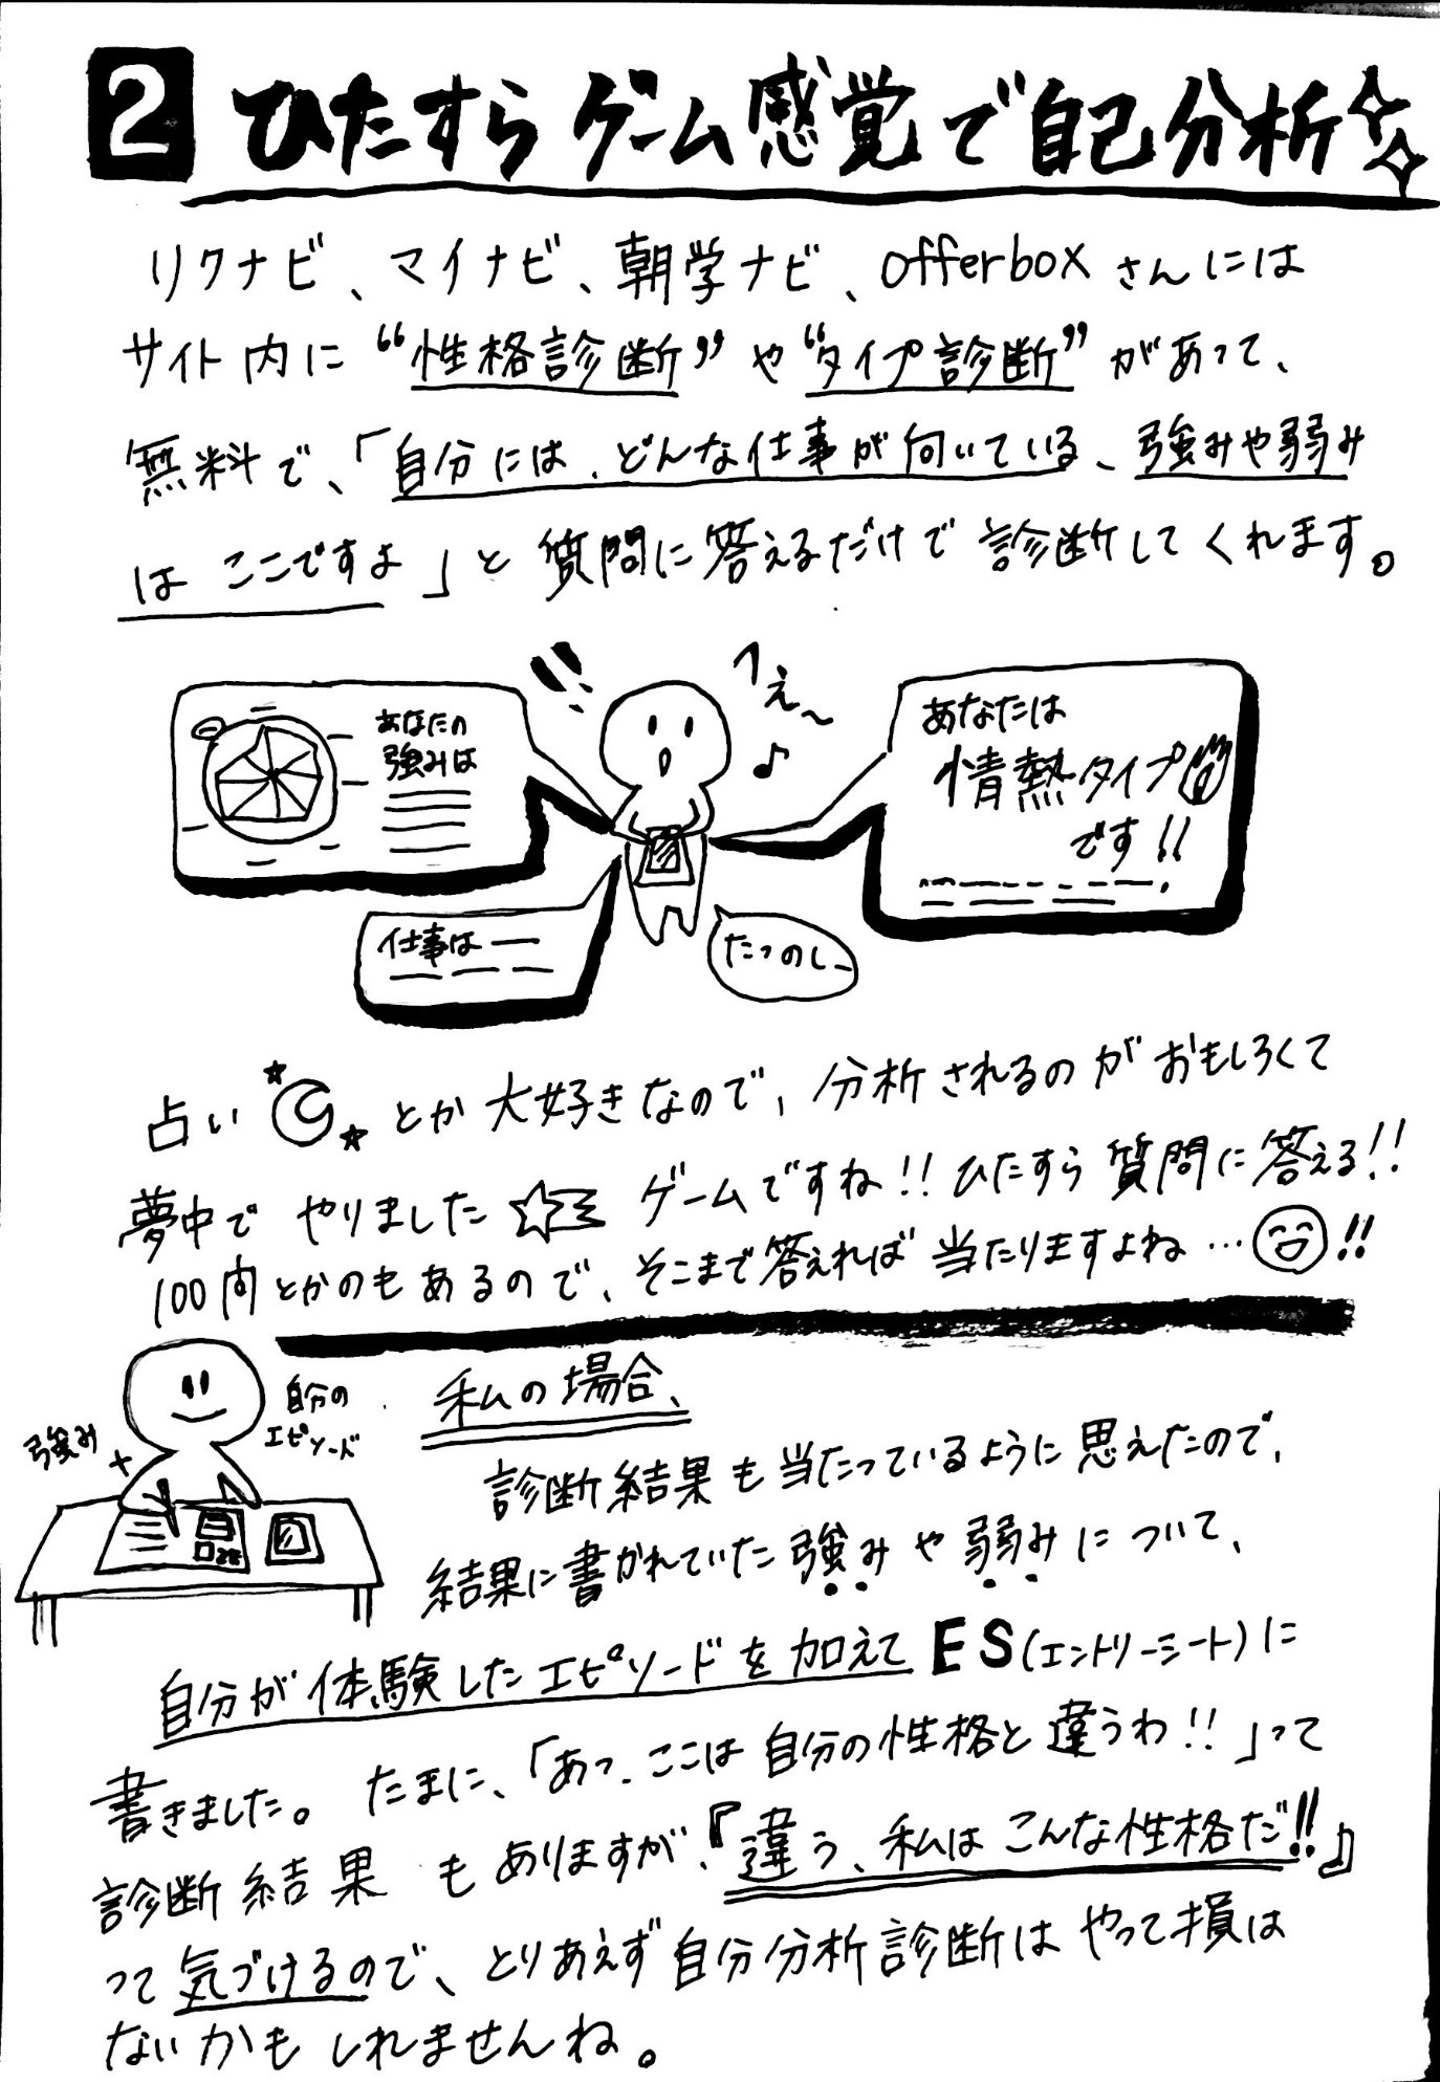 2 ひたすらゲーム感覚で自己分析
リクナビ、マイナビ、朝学ナビ、offerboxさんには
サイト内に“性格診断”や“タイプ診断”があって、
無料で、「自分には、どんな仕事が向いている、強みや弱み
はここですよ」と質問に答えるだけで診断してくれます。
!!
へぇ〜♪
あなたの
強みは
あなたは
情熱タイプ
です!!
仕事は
たっのしー
占いとか大好きなので、分析されるのがおもしろくて
夢中でやりました ゲームですね!!ひたすら質問に答える!!
100問とかのもあるので、そこまで答えれば当たりますよね…!!
強み
+
自分の
エピソード
私の場合、
診断結果も当たっているように思えたので、
結果に書かれていた強みや弱みについて、
自分が体験したエピソードを加えてES(エントリーシート)に
書きました。たまに、「あっ、ここは自分の性格と違うわ!!」って
診断結果もありますが、『違う、私はこんな性格だ!!』
って気づけるので、とりあえず自分分析診断はやって損は
ないかもしれませんね。